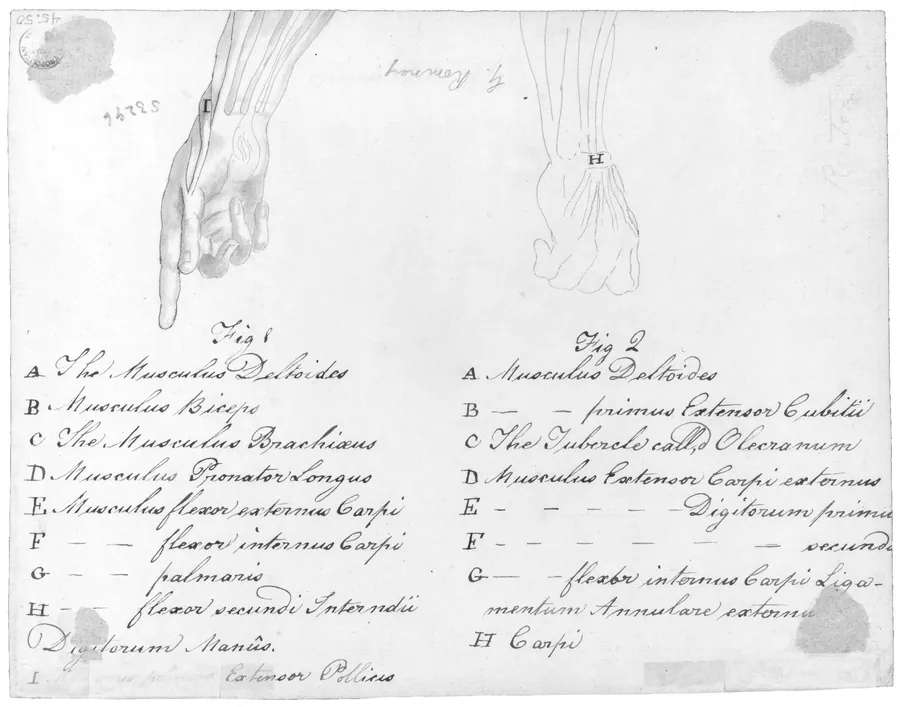 45.50
53296
G. Romney
I
H
Fig 1
A The Musculus Deltoides
B Musculus Biceps
C The Musculus Brachiæus
D Musculus Pronator Longus
E Musculus flexor externus Carpi
F — — flexor internus Carpi
G — — palmaris
H — — flexor secundi Interndii
Digitorum Manûs.
I Extensor Pollicis
Fig 2
A Musculus Deltoides
B — — primus Extensor Cubitii
C The Tubercle call,d Olecranum
D Musculus Extensor Carpi externus
E - - - - - Digitorum primu
F - — — — — — secund
G — - flexor internus Carpi Liga-
mentum Annulare externu
H Carpi